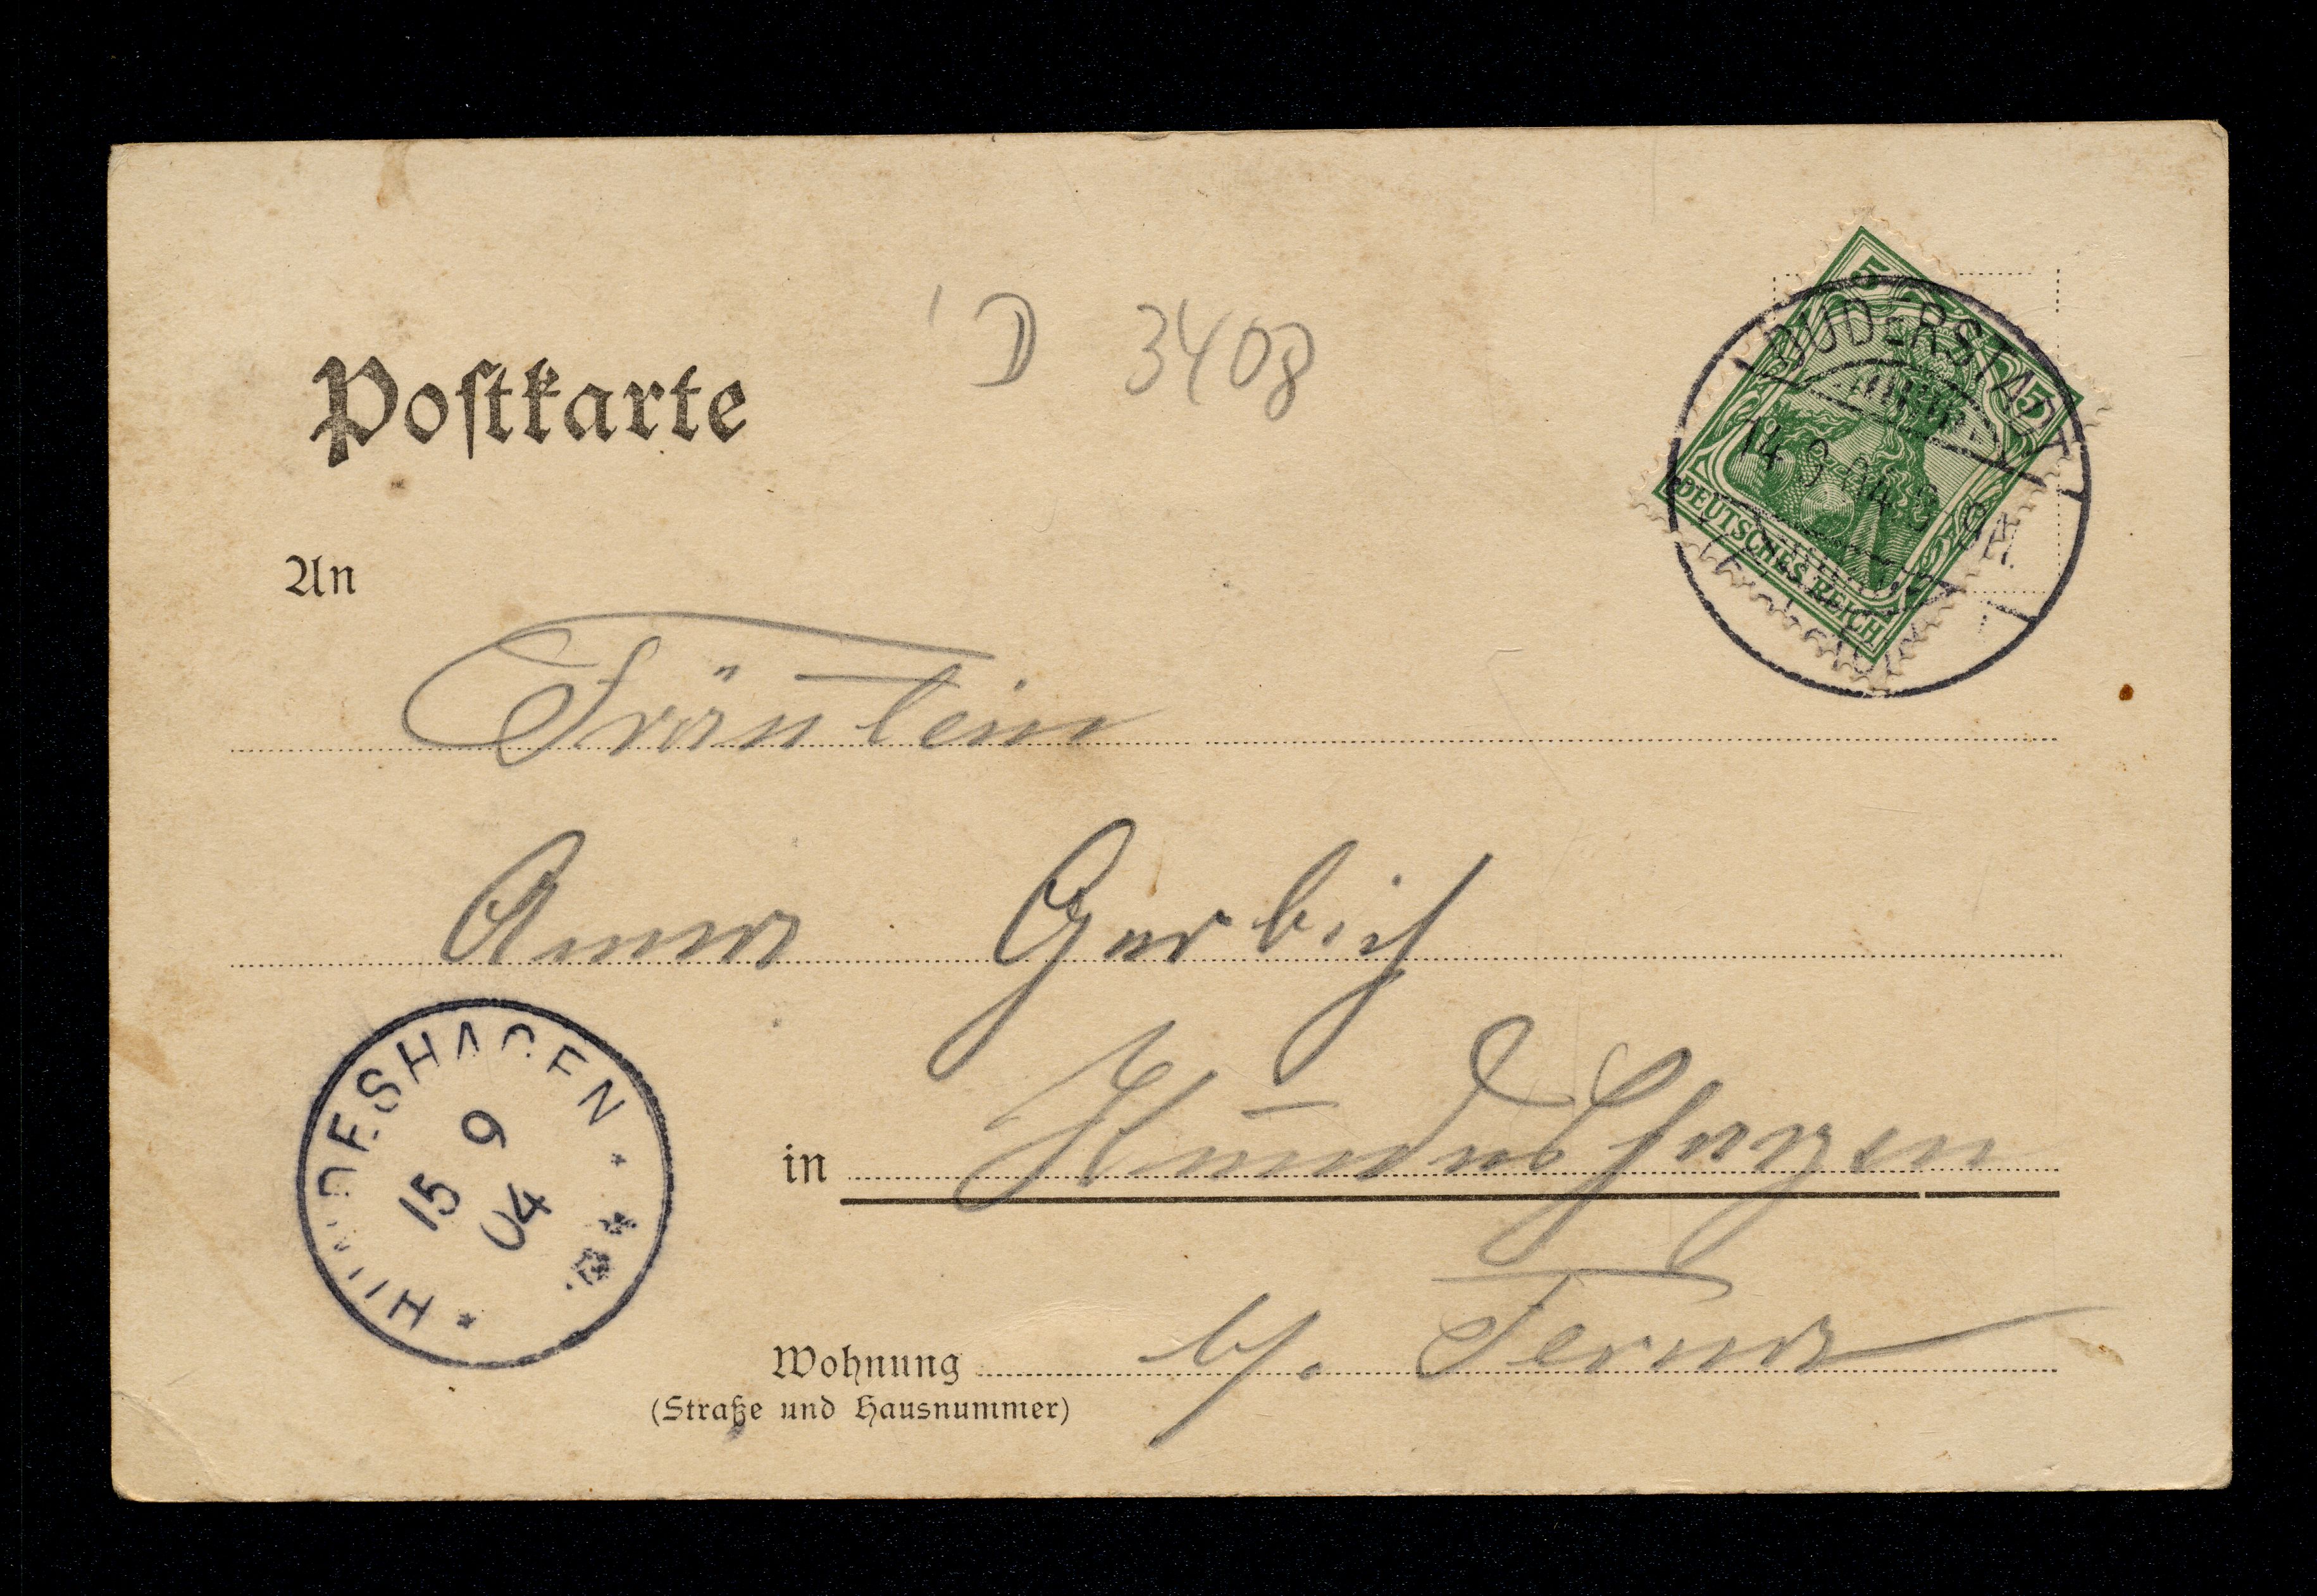 D 3408
5 5
DUDERSTADT
14 9 04
DEUTSCHES REICH
Postkarte
An
Fräulein
Anna
in Hundeshagen
HUNDESHAGEN
15 9
04
Wohnung b/.
(Straße und Hausnummer)